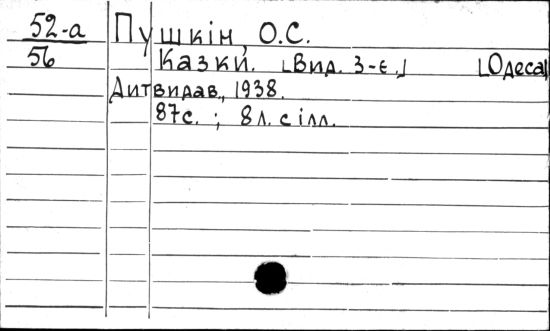 52-а
56
Пушкін, О.С.
Казки. [Вид. 3-є.] [Одеса]
Дитвидав, 1938.
87с. ; 8 л. с ілл.